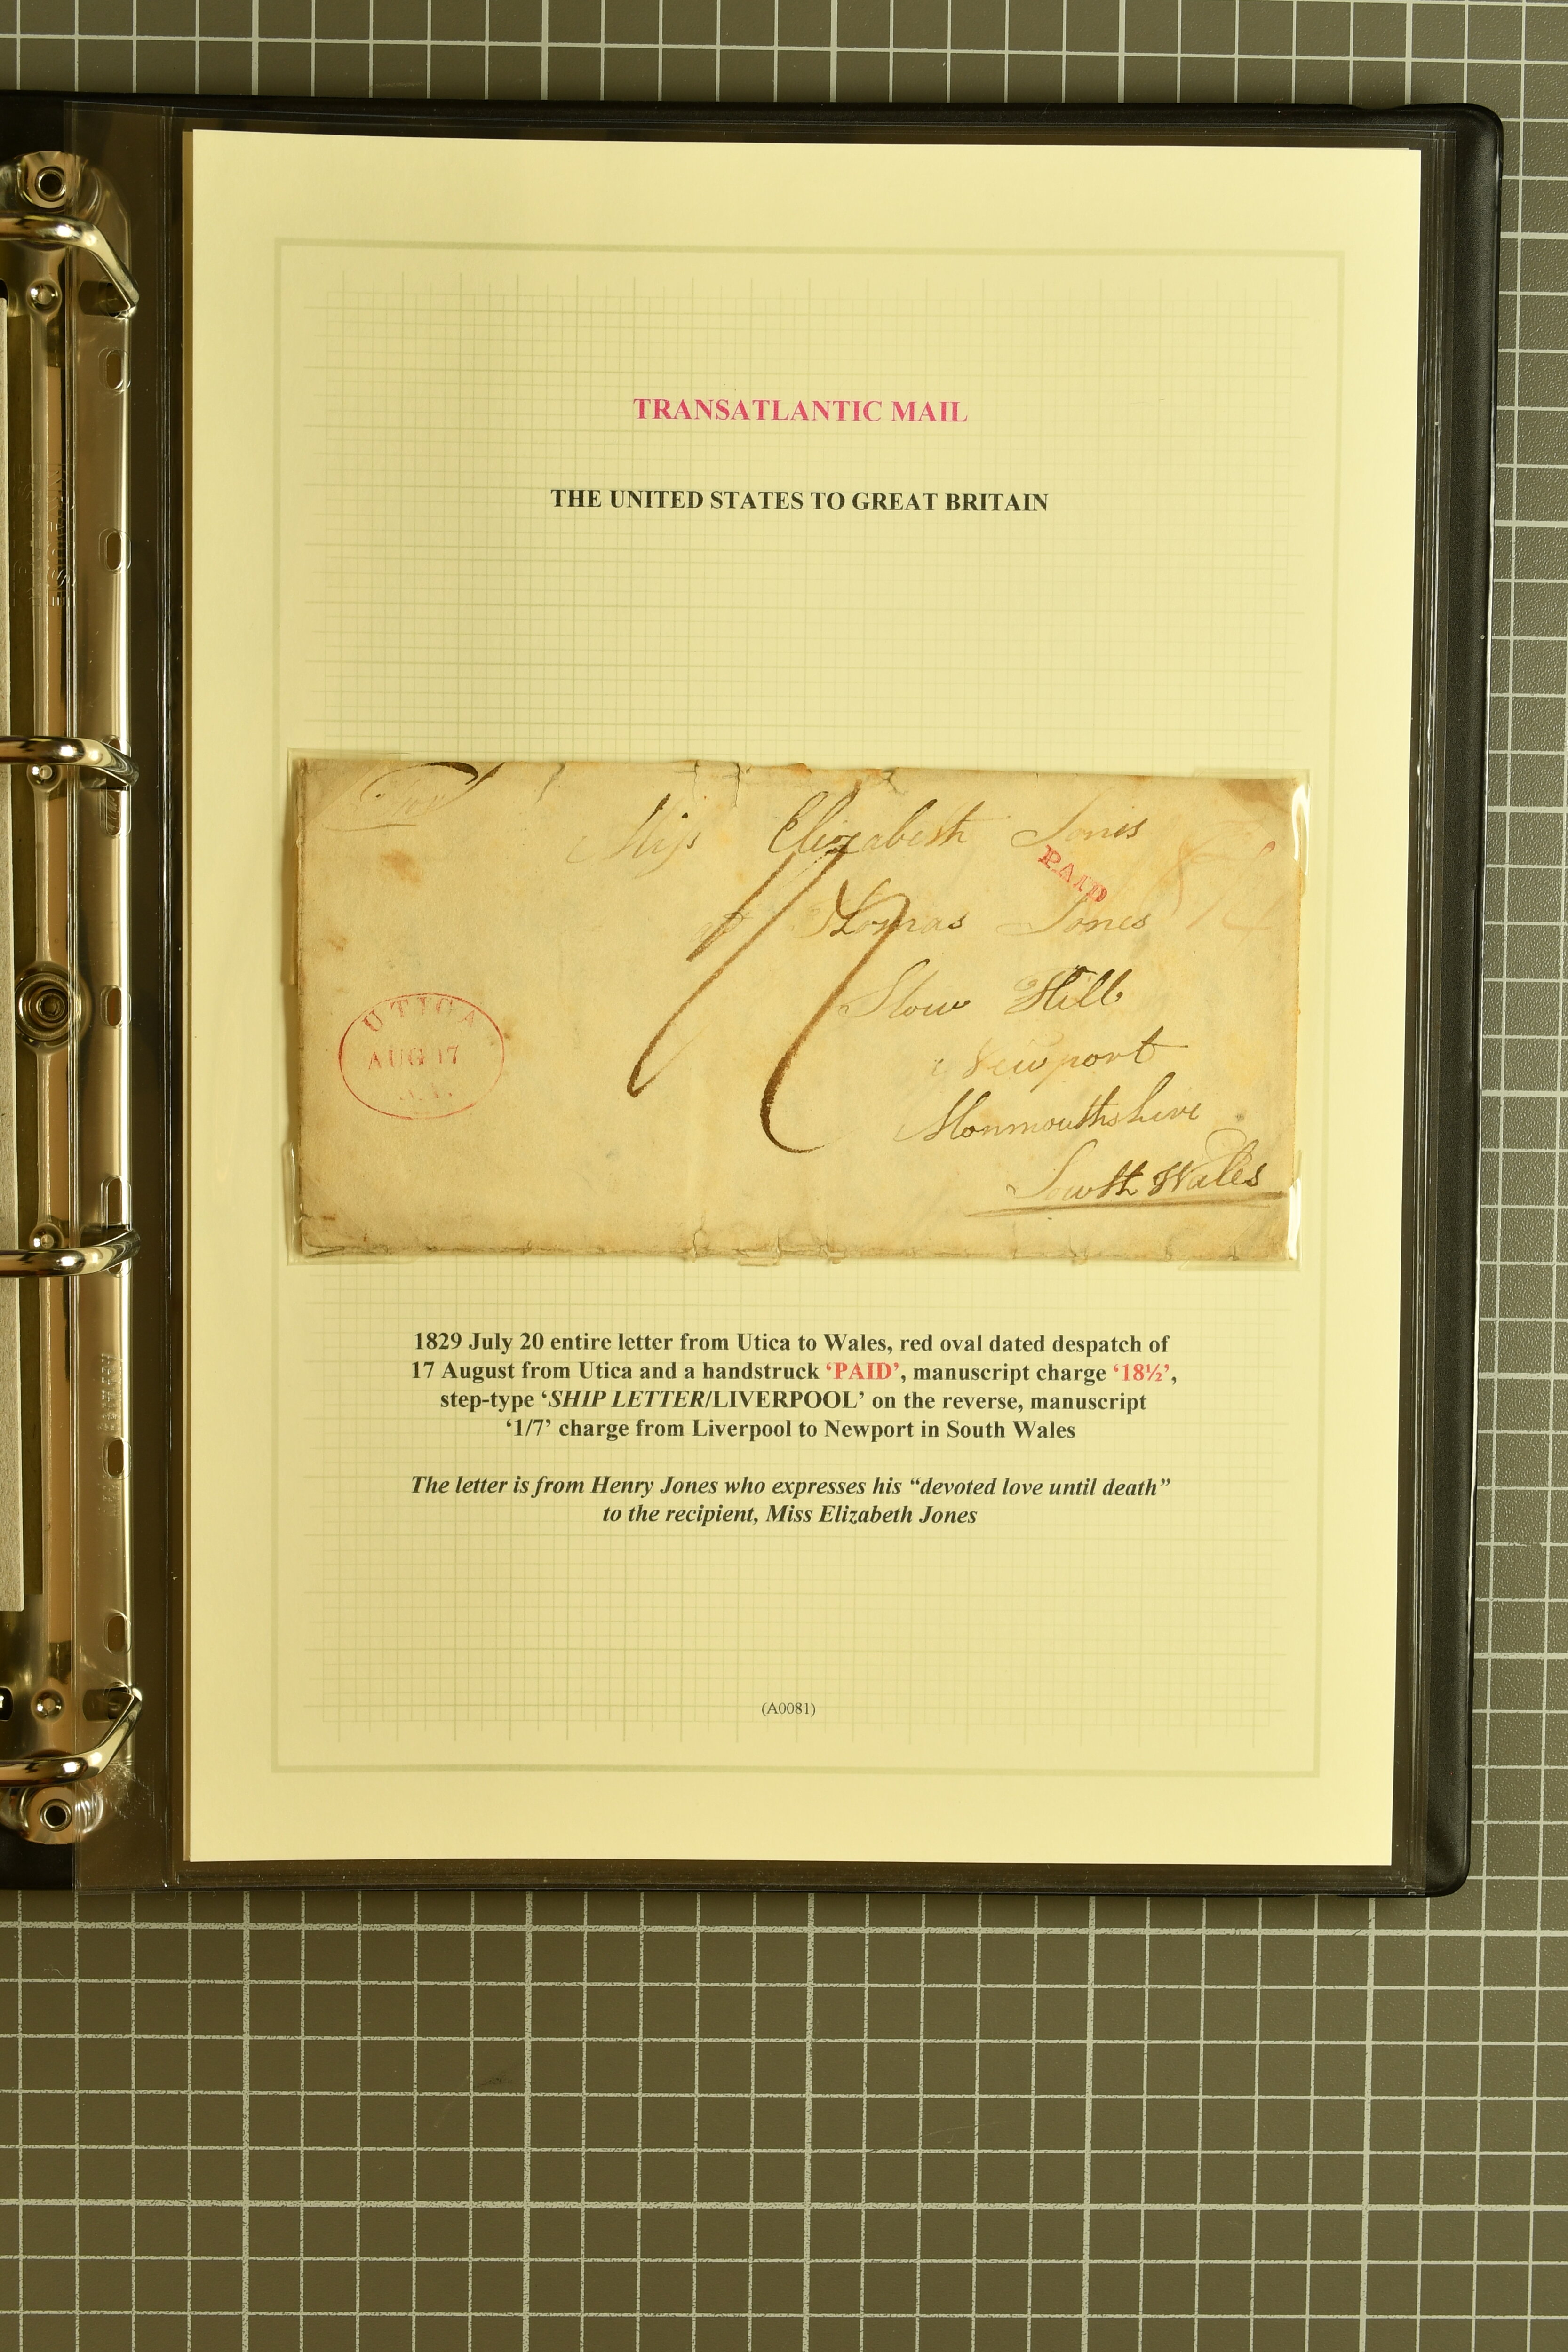 TRANSATLANTIC MAIL
THE UNITED STATES TO GREAT BRITAIN
Miss Elizabeth Jones
PAID
Thomas Jones
Stow Hill
Newport
Monmouthshire
South Wales
1/7
UTICA
AUG 17
1829 July 20 entire letter from Utica to Wales, red oval dated despatch of
17 August from Utica and a handstruck ‘PAID’, manuscript charge ‘18½’,
step-type ‘SHIP LETTER/LIVERPOOL’ on the reverse, manuscript
‘1/7’ charge from Liverpool to Newport in South Wales
The letter is from Henry Jones who expresses his “devoted love until death”
to the recipient, Miss Elizabeth Jones
(A0081)